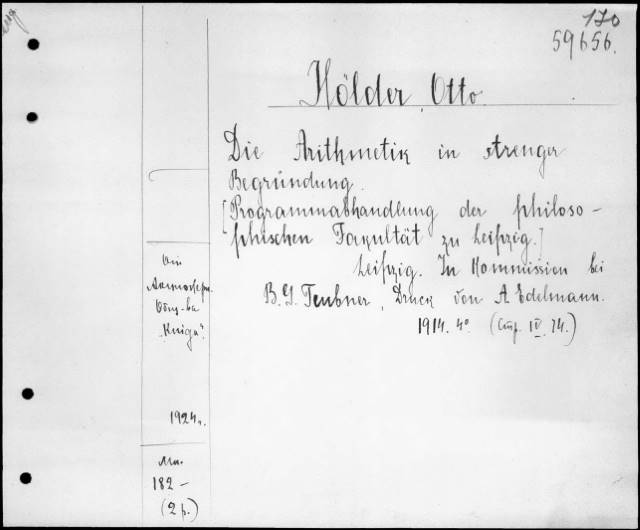 170
59656.
Hölder, Otto.
Die Arithmetik in strenger
Begründung.
[Programmabhandlung der philoso-
phischen Fakultät zu Leipzig.]
Leipzig. In Kommission bei
B. G. Teubner, Druck von A. Edelmann.
1914. 4°. (Стр. IV, 74.)
"Kniga".
1924г.
182 -
(2 р.)